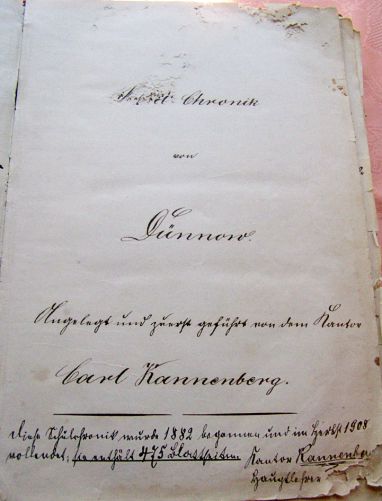 Chronik
von
Dünnow.
Angelegt und zuerst geführt von dem Kantor
Carl Kannenberg.
Diese Schulchronik wurde 1882 begonnen und im Herbst 1908
vollendet; sie enthält 475 Blattseiten. Kantor Kannenberg
Hauptlehrer